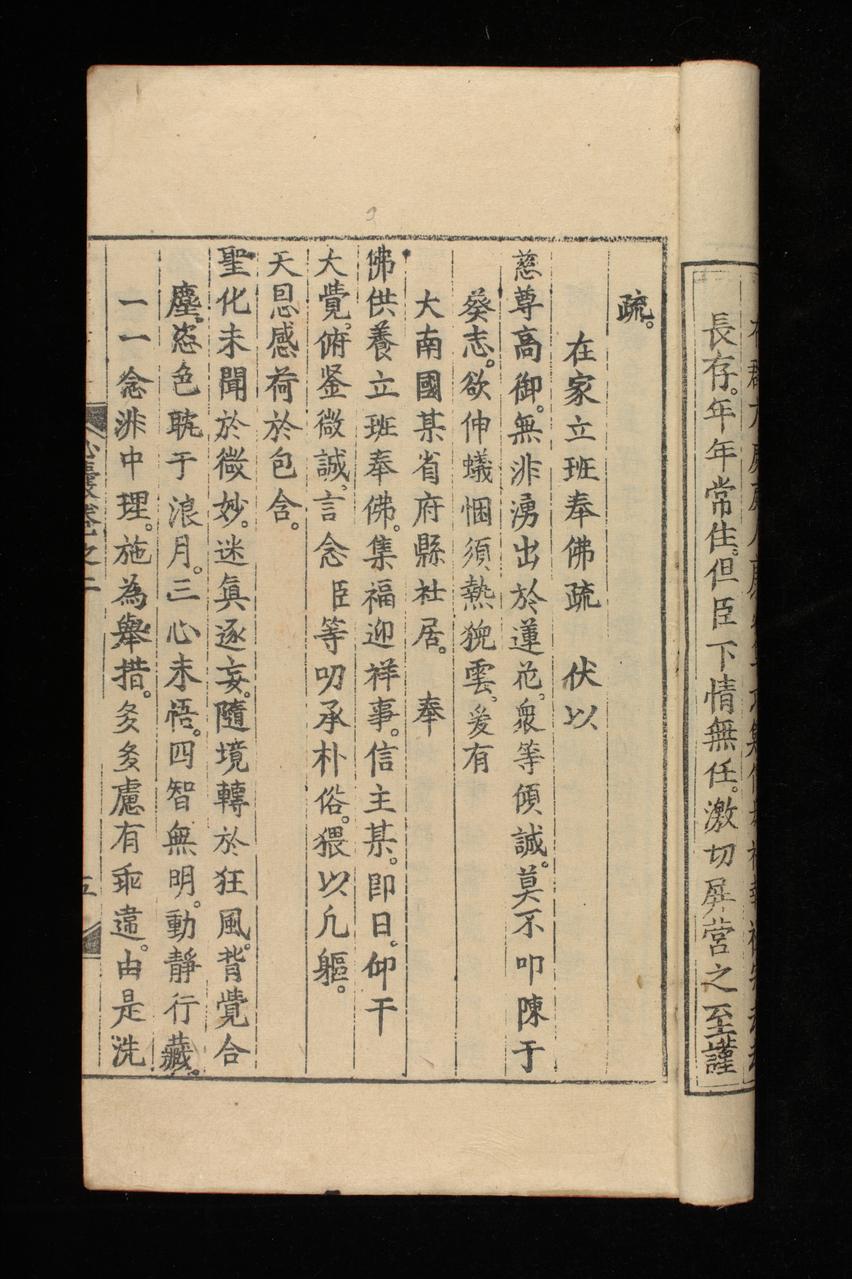 長存。年年常住。但臣下情無任。激切屏營之至謹
疏。
在家立班奉佛疏　伏以
慈尊高御。無非湧出於蓮花。衆等傾誠。莫不叩陳于
葵志。欲伸蟻悃須熱猊雲。爰有
大南國某省府縣社居。　奉
佛供養立班奉佛。集福迎祥事。信主某。即日。仰干
大覺。俯鉴微誠。言念臣等叨承朴俗。猥以凢軀。
天恩感荷於包含。
聖化未聞於微妙。迷眞逐妄。隨境轉於狂風。背覺合
塵。恣色躭于浪月。三心未悟。四智無明。動静行藏。
一一念非中理。施為舉措。多多慮有乖違。由是洗
心囊卷之二
五